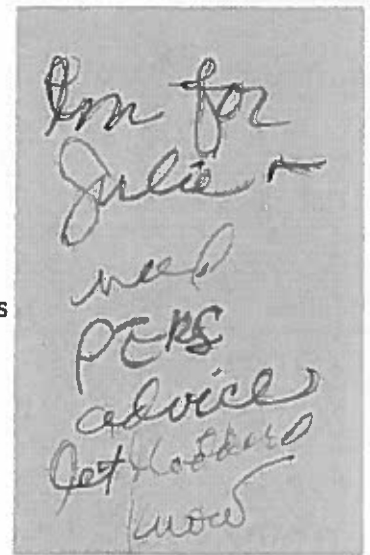 for
Julie -
need
PERS
advice
let
know
s